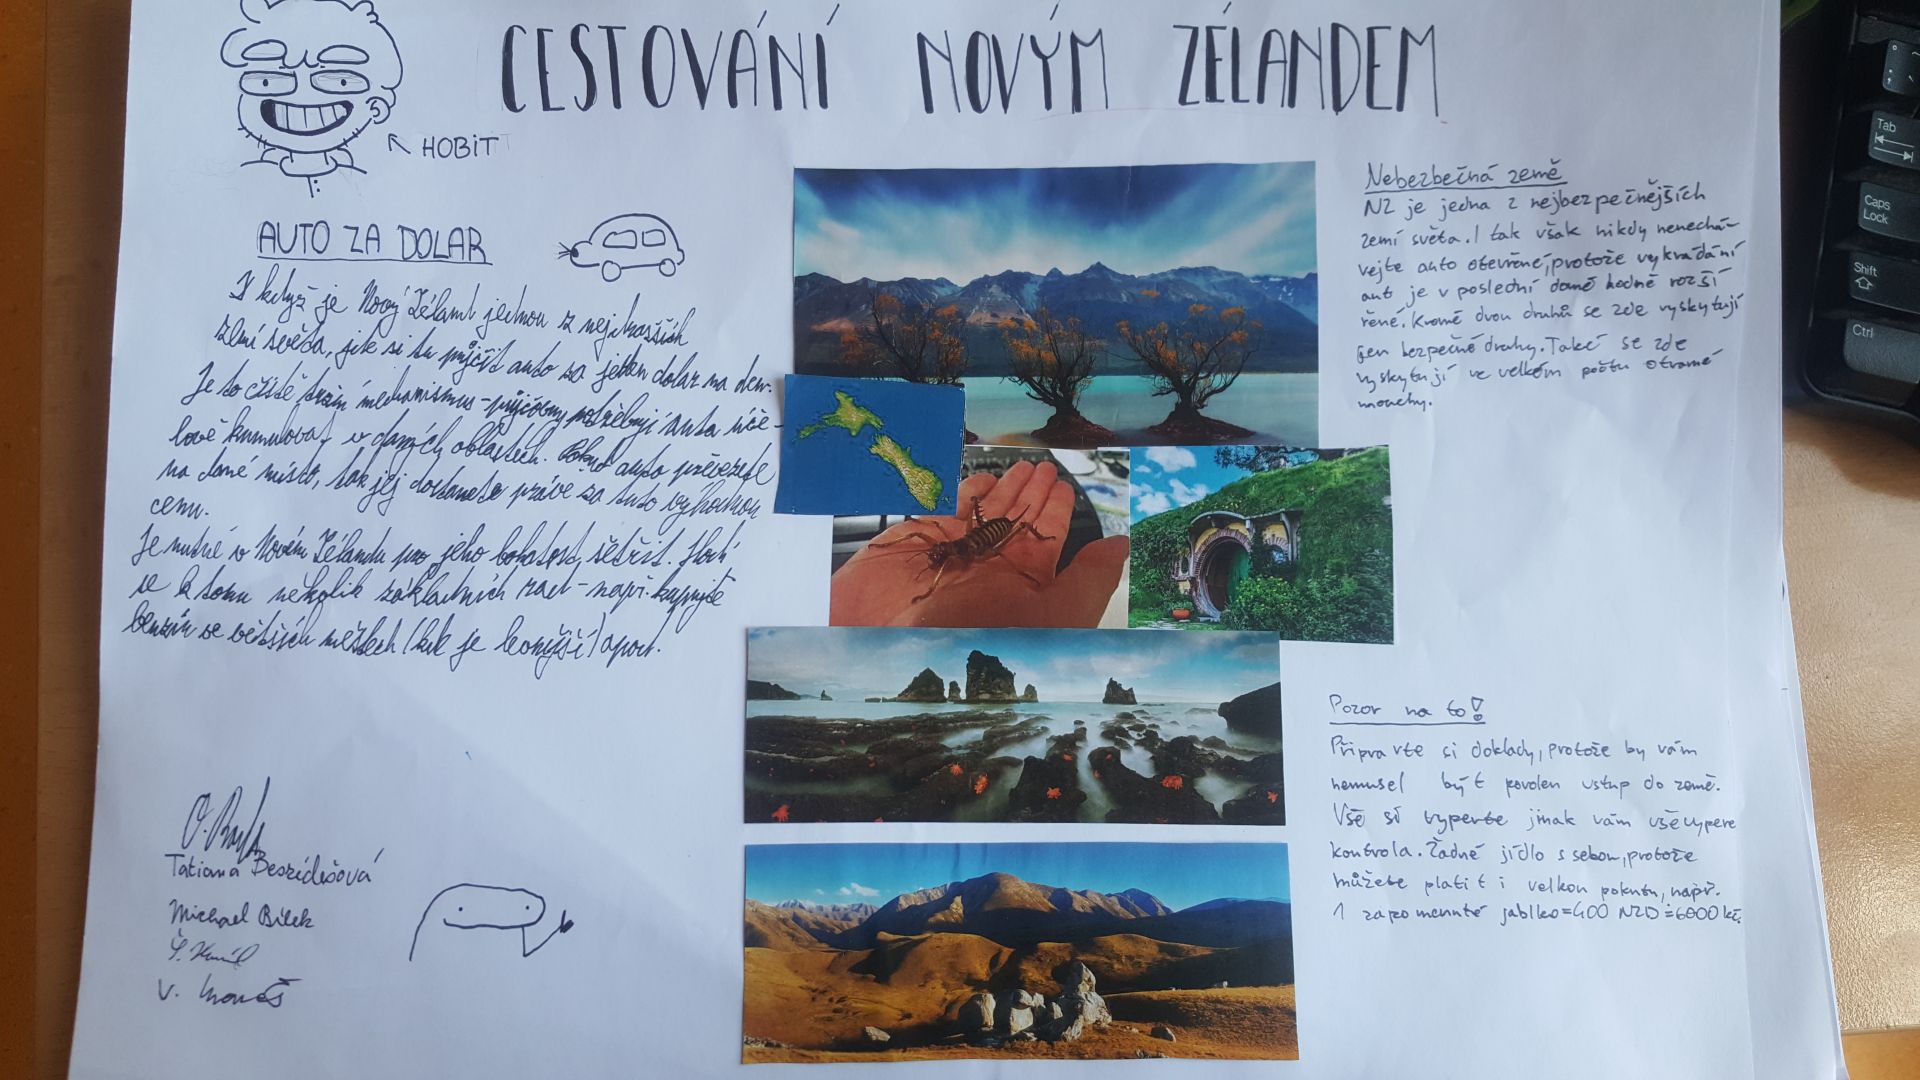 CESTOVÁNÍ NOVÝM ZÉLANDEM
HOBIT
AUTO ZA DOLAR
I když je Nový Zéland jednou z nejdražších
zemí světa, jde si tu půjčit auto za jeden dolar na den.
Je to čistě tržní mechanismus - půjčovny potřebují auta úče-
lově kumulovat v daných oblastech. Pokud auto převezete
na dané místo, tak jej dostanete právě za tuto výhodnou
cenu.
Je nutné v Novém Zélandu pro jeho bohatost šetřit. Hodí
se k tomu několik základních rad - např. kupujte
benzín ve větších městech (kde je levnější) apod.
Nebezbečná země
NZ je jedna z nejbezpečnějších
zemí světa. I tak však nikdy nenechá-
vejte auto otevřené, protože vykrádání
aut je v poslední době hodně rozší
řené. Kromě dvou druhů se zde vyskytují
jen bezpečné druhy. Také se zde
vyskytují ve velkém počtu otravné
mouchy.
Pozor na to!
Připravte si doklady, protože by vám
nemusel být povolen vstup do země.
Vše si vyperte jinak vám vše vypere
kontrola. Žádné jídlo s sebou, protože
můžete platit i velkou pokutu, např.
1 zapomenuté jablko = 400 NZD ≐ 6000 kč.
Tatiana
Michael Bílek
Tab
Caps Lock
Shift
Ctrl